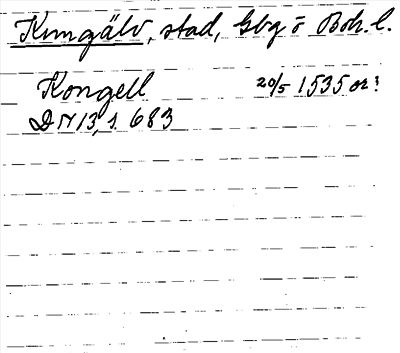 Kungälv, stad, Gbg o Boh. l.
Kongell 20/5 1535 or!
DN 13, s. 683